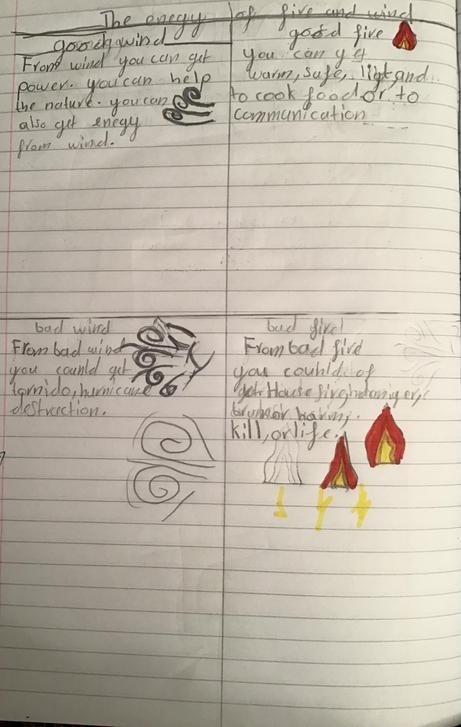 The enegy of fire and wind
good wind
From wind you can get
power. you can help
the nature. you can
also get enegy
from wind.
good fire
you can get
warm, safe, light and
to cook food or to
communication
bad wind
From bad wind
you counld get
tornido, hurricane
destraction.
bad fire
From bad fire
you counld of
get House fire, danger,
harm,
kill, or life.